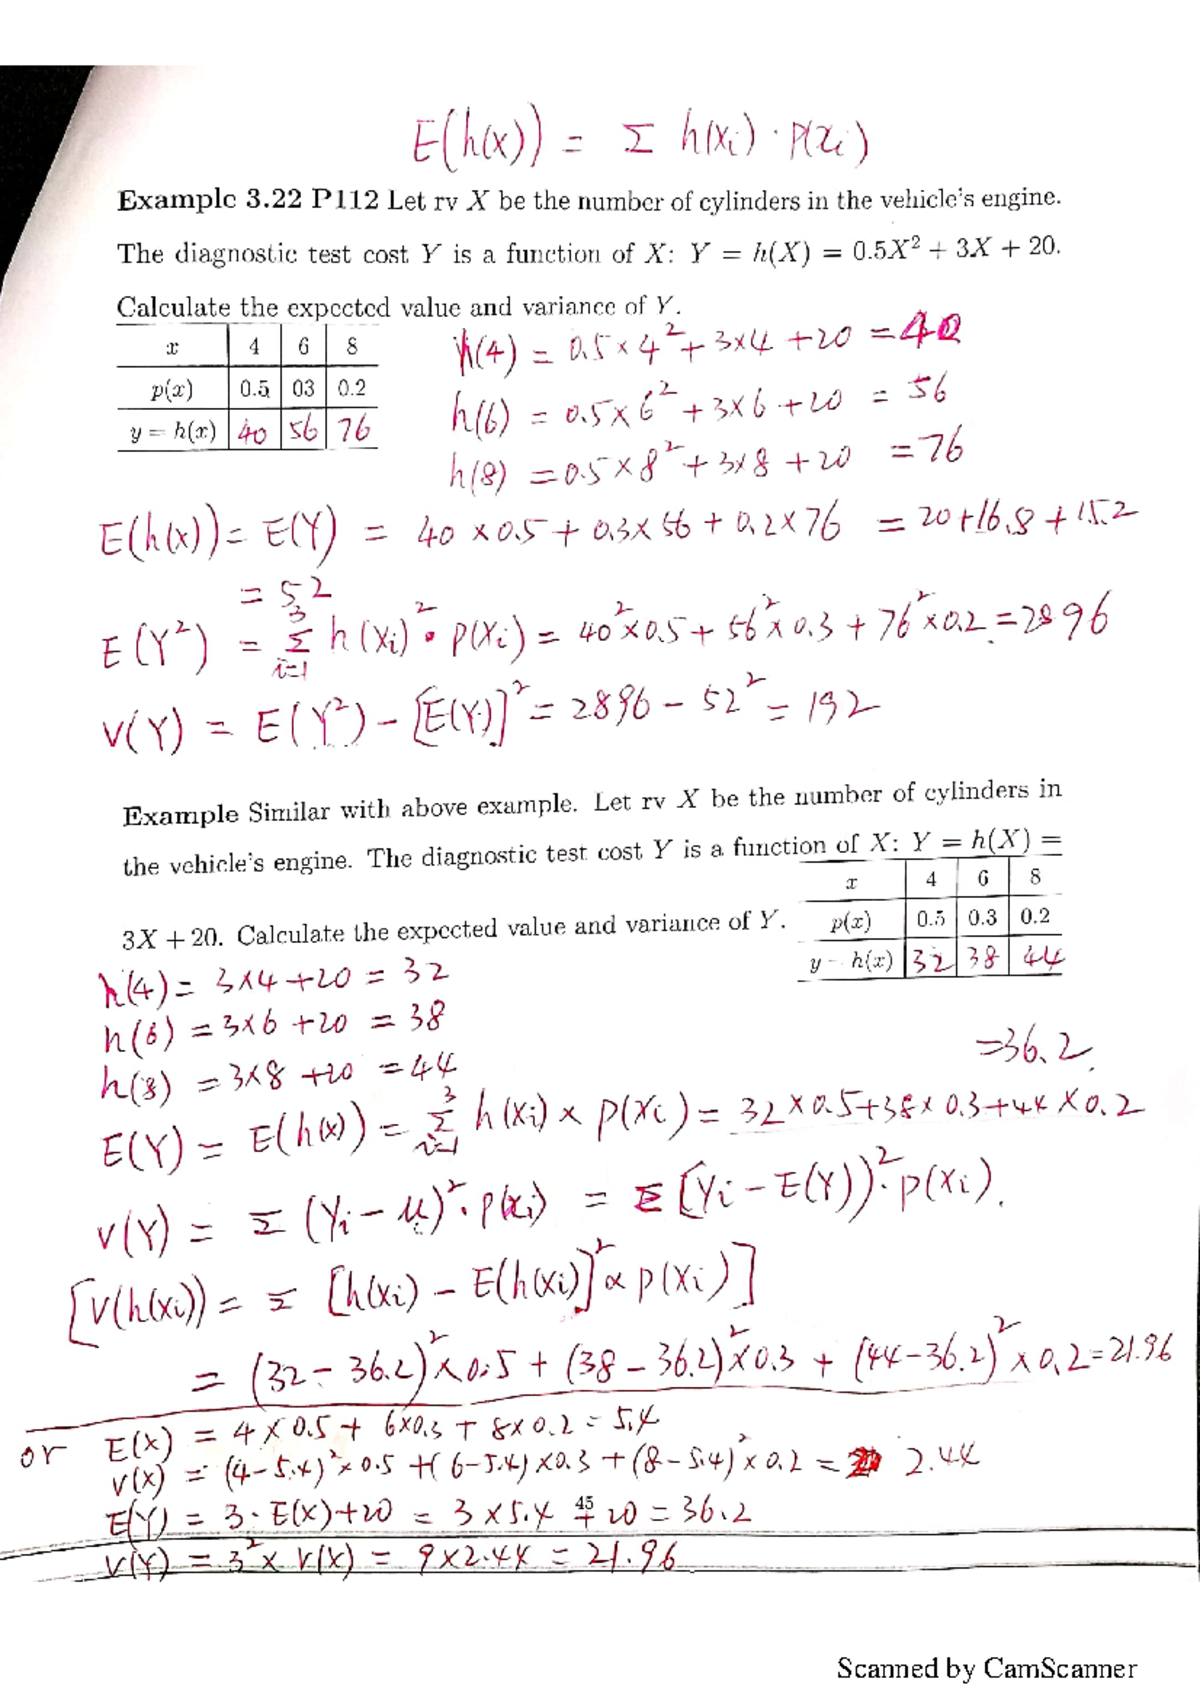 E(h(x)) = Σ h(xi) · p(xi)
Example 3.22 P112 Let rv X be the number of cylinders in the vehicle's engine.
The diagnostic test cost Y is a function of X: Y = h(X) = 0.5X² + 3X + 20.
Calculate the expected value and variance of Y.
x 4 6 8
p(x) 0.5 03 0.2
y = h(x) 40 56 76
h(4) = 0.5 × 4² + 3×4 + 20 = 40
h(6) = 0.5 × 6² + 3×6 + 20 = 56
h(8) = 0.5 × 8² + 3×8 + 20 = 76
E(h(x)) = E(Y) = 40 × 0.5 + 0.3 × 56 + 0.2 × 76 = 20 + 16.8 + 15.2
= 52
E(Y²) = Σ_{i=1}^{3} h(xi)² • p(xi) = 40² × 0.5 + 56² × 0.3 + 76² × 0.2 = 2896
V(Y) = E(Y²) - [E(Y)]² = 2896 - 52² = 192
Example Similar with above example. Let rv X be the number of cylinders in
the vehicle's engine. The diagnostic test cost Y is a function of X: Y = h(X) =
3X + 20. Calculate the expected value and variance of Y.
x 4 6 8
p(x) 0.5 0.3 0.2
y = h(x) 32 38 44
h(4) = 3×4 + 20 = 32
h(6) = 3×6 + 20 = 38
h(8) = 3×8 + 20 = 44
= 36.2
E(Y) = E(h(x)) = Σ_{i=1}^{3} h(xi) × p(xi) = 32 × 0.5 + 38 × 0.3 + 44 × 0.2
V(Y) = Σ (Yi - μ)² · p(xi) = Σ [Yi - E(Y)]² · p(xi).
[V(h(xi)) = Σ [h(xi) - E(h(xi)]² × p(xi)]
= (32 - 36.2)² × 0.5 + (38 - 36.2)² × 0.3 + (44 - 36.2)² × 0.2 = 21.96
or E(x) = 4 × 0.5 + 6×0.3 + 8×0.2 = 5.4
V(x) = (4-5.4)² × 0.5 + (6-5.4) × 0.3 + (8-5.4)² × 0.2 = 2.44
E(Y) = 3 · E(x) + 20 = 3 × 5.4 + 20 = 36.2
45
V(Y) = 3² × V(x) = 9 × 2.44 = 21.96
Scanned by CamScanner